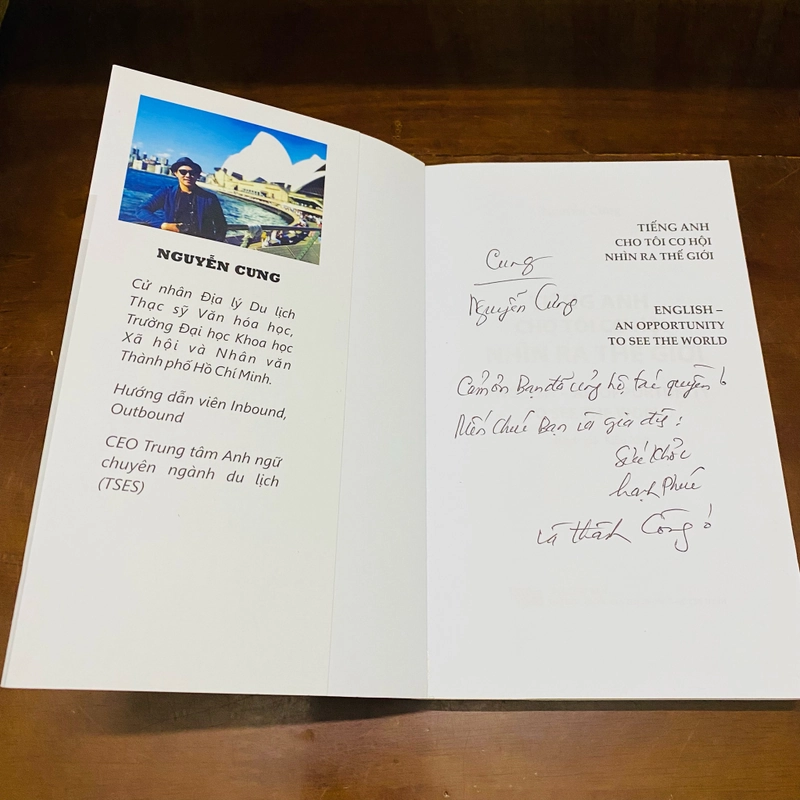 NGUYỄN CUNG
Cử nhân Địa lý Du lịch
Thạc sỹ Văn hóa học,
Trường Đại học Khoa học
Xã hội và Nhân văn
Thành phố Hồ Chí Minh.
Hướng dẫn viên Inbound,
Outbound
CEO Trung tâm Anh ngữ
chuyên ngành du lịch
(TSES)
TIẾNG ANH
CHO TÔI CƠ HỘI
NHÌN RA THẾ GIỚI
Cung
Nguyễn Cung
ENGLISH –
AN OPPORTUNITY
TO SEE THE WORLD
Cảm ơn Bạn đã ủng hộ tác quyền
Mến chúc Bạn và gia đình:
Sức khỏe
hạnh phúc
và thành công